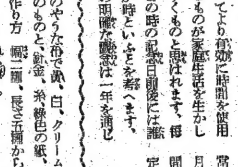 てより有効に時間を使用
ものが家庭生活を生かし
くものと思はれます。毎
の時の記念日前後には誰
時といふとを考へます。
の明確な観念は一年を通じ
常
月
開
定
のやうな布で黄、白、クリーム
のものと、針金、糸、緑色の紙、
作り方 幅二糎、長さ五糎から